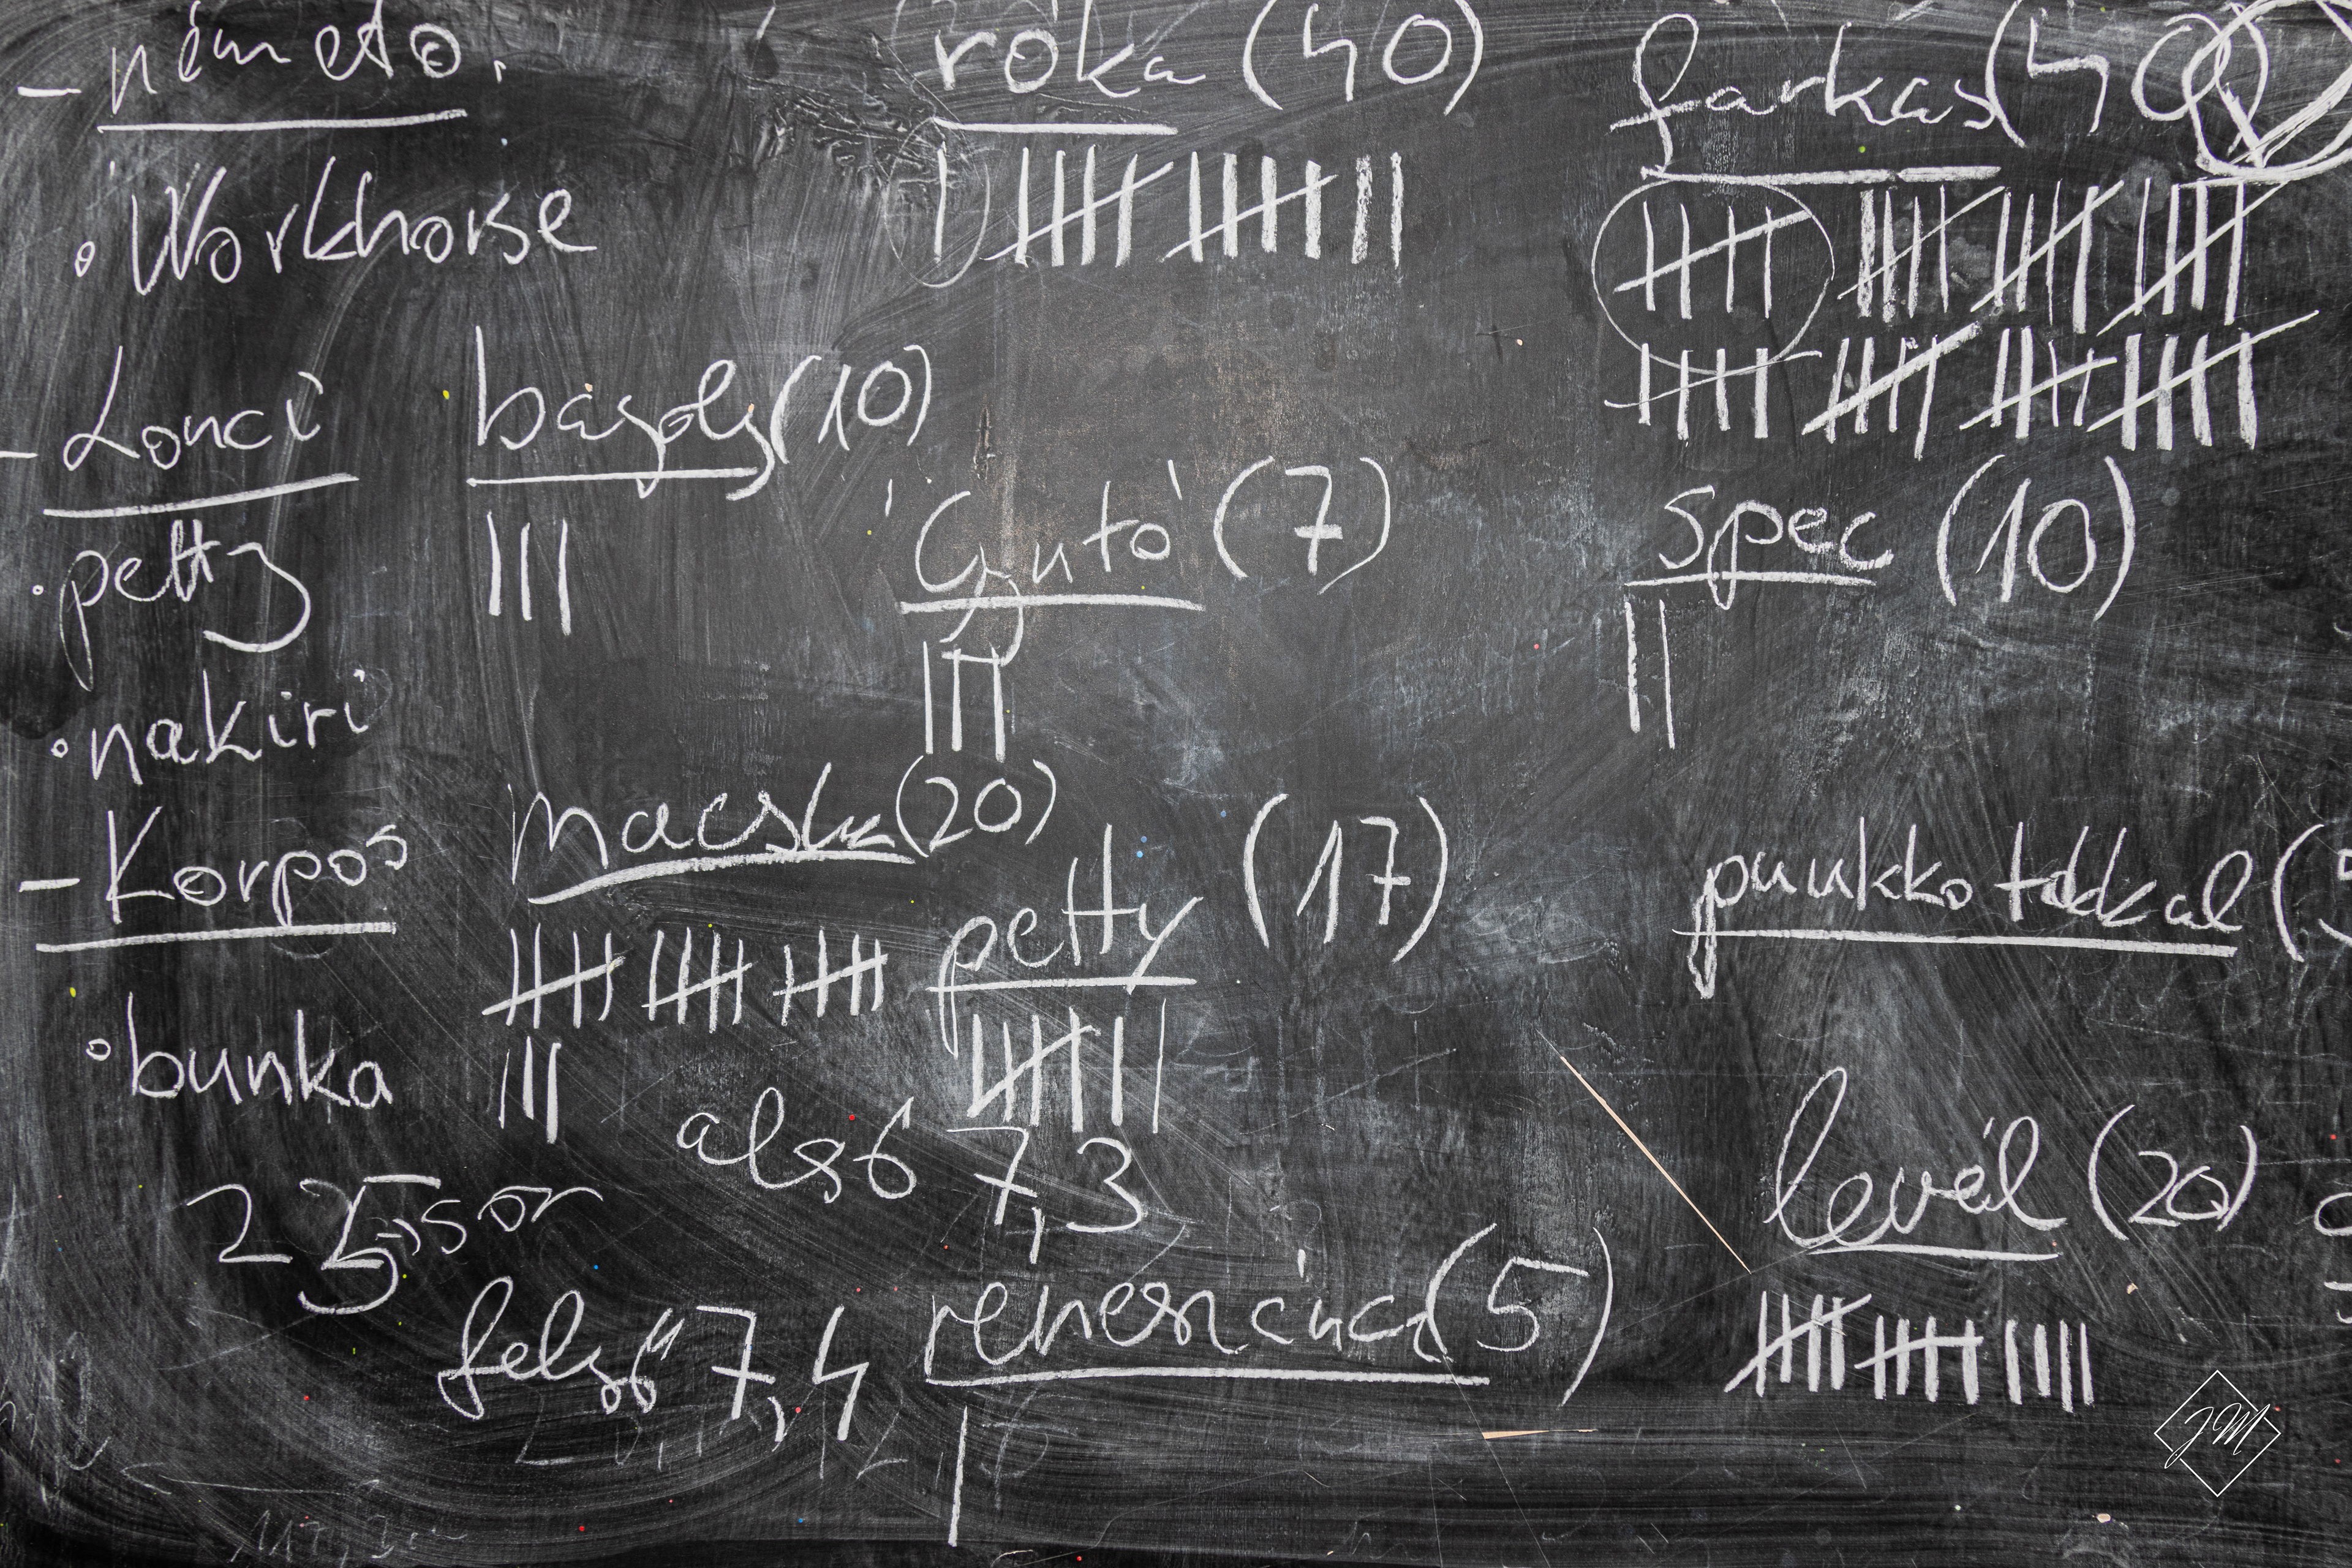 - németo.
• Workhorse
- Lonci
• petty
• nakiri
- Korpos
• bunka
25,-sor
róka (40)
bagoly (10)
'Gyutó' (7)
macska (20)
petty (17)
alsó 7,3
felső 7,4
reneszánsz (5)
farkas (40)
spec (10)
puukko tokkal (5
levél (20)
JM